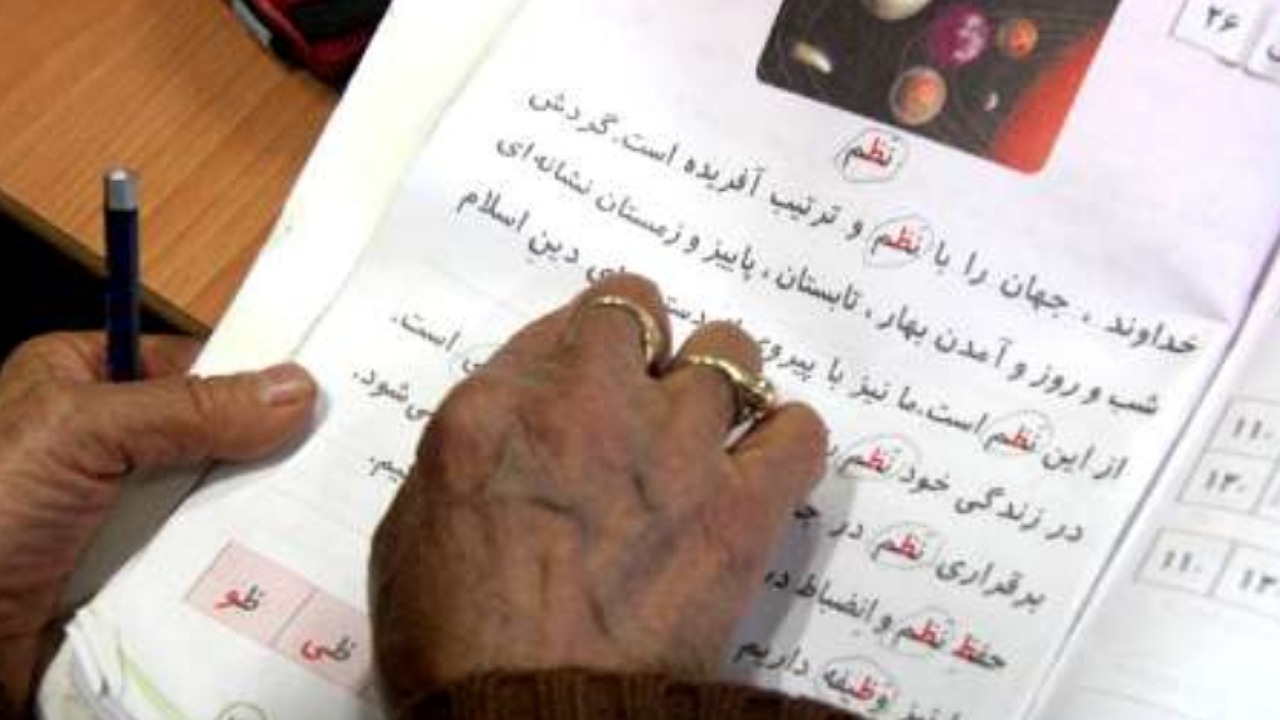 ۲۶
نَظم
خداوند ، جهان را با نَظم و ترتیب آفریده است.گردش
شب و روز و آمدن بهار ، تابستان ، پاییز و زمستان نشانه‌ای
از این نَظم است.ما نیز با پیروی دین اسلام
در زندگی خود نَظم است.
برقراری نَظم در می‌شود.
حفظ نَظم و انضباط در
نیز وظیفه داریم
ظو
ظی
۱۱۰
۱۲۰
۱۱۰